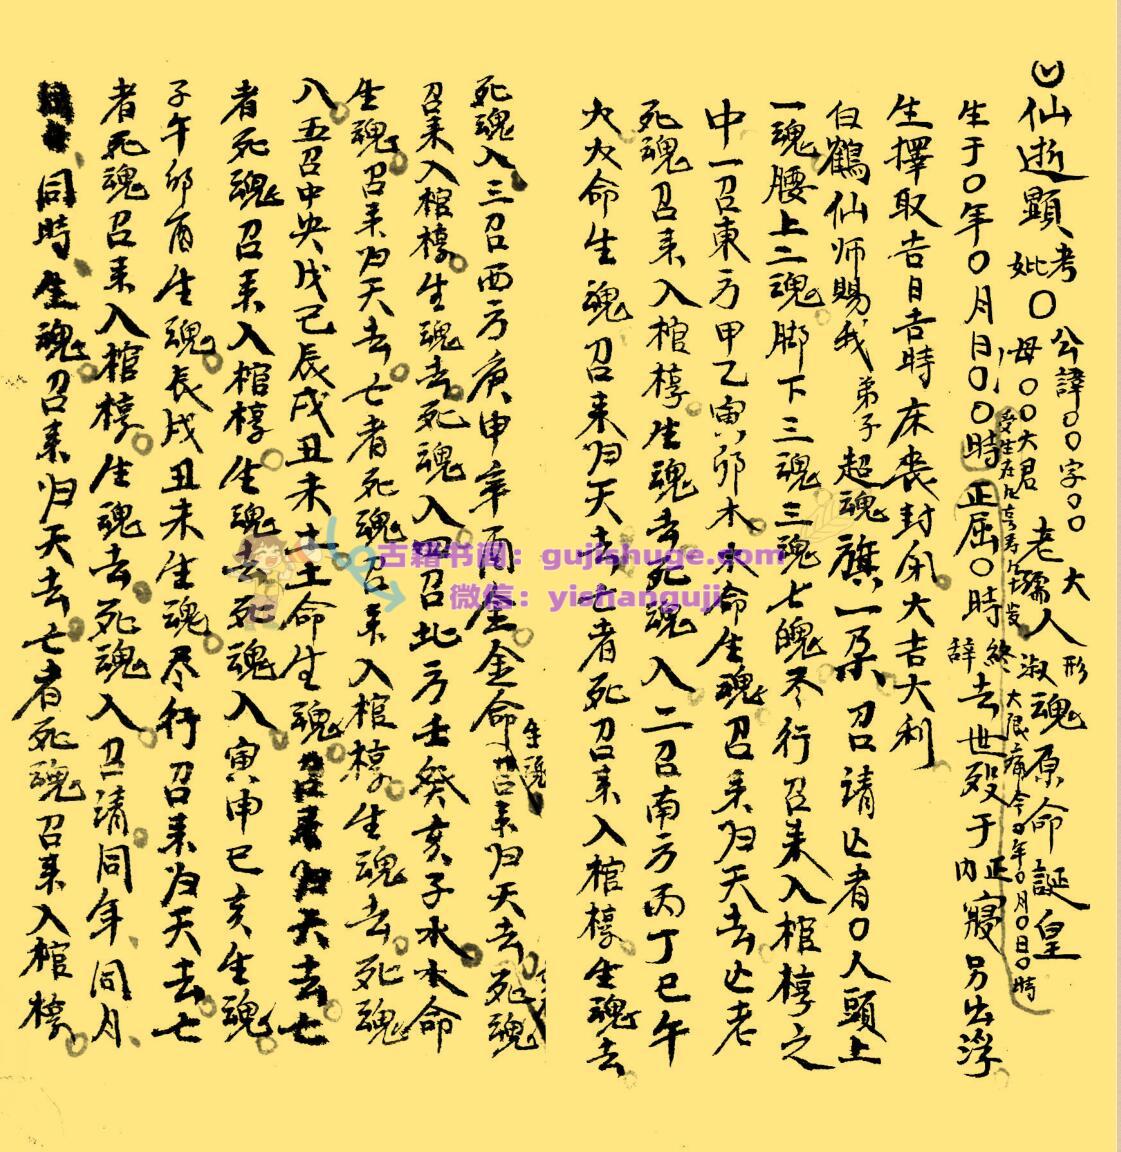 仙逝顯考妣〇公諱〇〇字〇〇大母〇〇大君老孺人形淑魂原命誕皇
生于〇年〇月〇日〇時正屈〇時終辞去世殁于正内寢另出浮
大限痛今〇年〇月〇日〇時
生擇取吉日吉時床喪封門大吉大利
白鶴仙师賜我弟子超魂旗一朶召請亡者〇人頭上
一魂腰上二魂脚下三魂三魂七魄尽行召来入棺槨之
中一召東方甲乙寅卯木木命生魂召来归天去亡者
死魂召来入棺槨生魂去死魂入二召南方丙丁巳午
火火命生魂召来归天去亡者死召来入棺槨生魂去
死魂入三召西方庚申辛酉金金命生魂召来归天去死魂
召来入棺槨生魂去死魂入四召北方壬癸亥子水水命
生魂召来归天去亡者死魂召来入棺槨生魂去死魂
入五召中央戊己辰戌丑未土土命生魂召来归天去亡
者死魂召来入棺槨生魂去死魂入寅申巳亥生魂
子午卯酉生魂辰戌丑未生魂尽行召来归天去亡
者死魂召来入棺槨生魂去死魂入召請同年同月
同時生魂召来归天去亡者死魂召来入棺槨
古籍书阁：gujishuge.com
微信：yishanguji